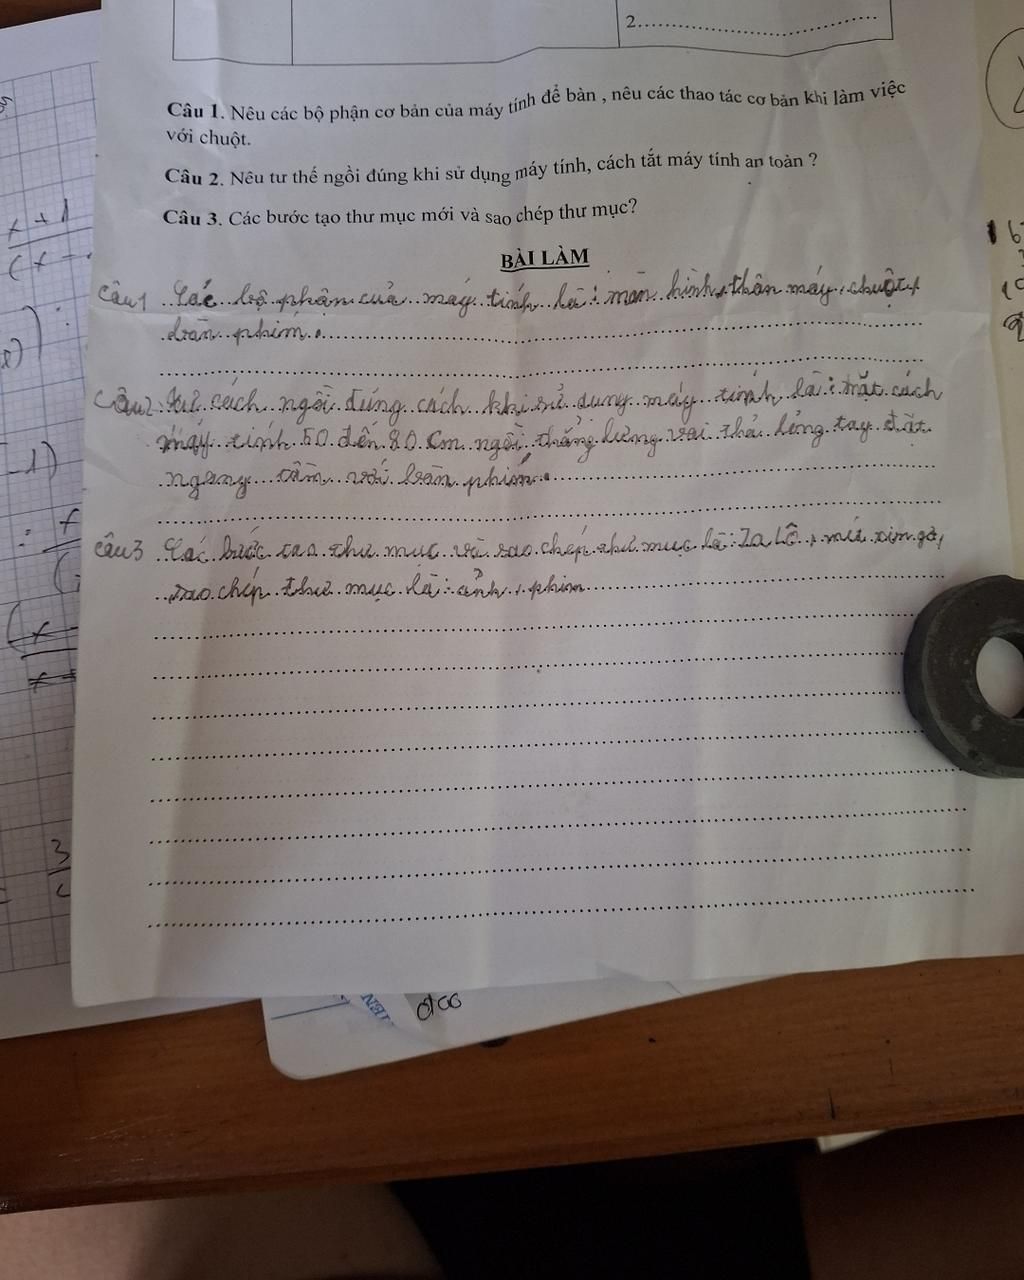 2.
Câu 1. Nêu các bộ phận cơ bản của máy tính để bàn , nêu các thao tác cơ bản khi làm việc
với chuột.
Câu 2. Nêu tư thế ngồi đúng khi sử dụng máy tính, cách tắt máy tính an toàn ?
Câu 3. Các bước tạo thư mục mới và sao chép thư mục?
BÀI LÀM
Câu1 Các bộ phận của máy tính là: màn hình, thân máy, chuột,
bàn phím.
Câu2 cách ngồi đúng cách khi sử dung máy tính là: mặt cách
máy tính 50 đến 80 cm ngồi thẳng lưng vai thả lỏng tay đặt
ngang tầm với bàn phím.
Câu3 Các bước tạo thư mục và sao chép thư mục là: Za Lô,
sao chép thư mục là: ảnh, phim
x + 1
(x -
- 1)
3